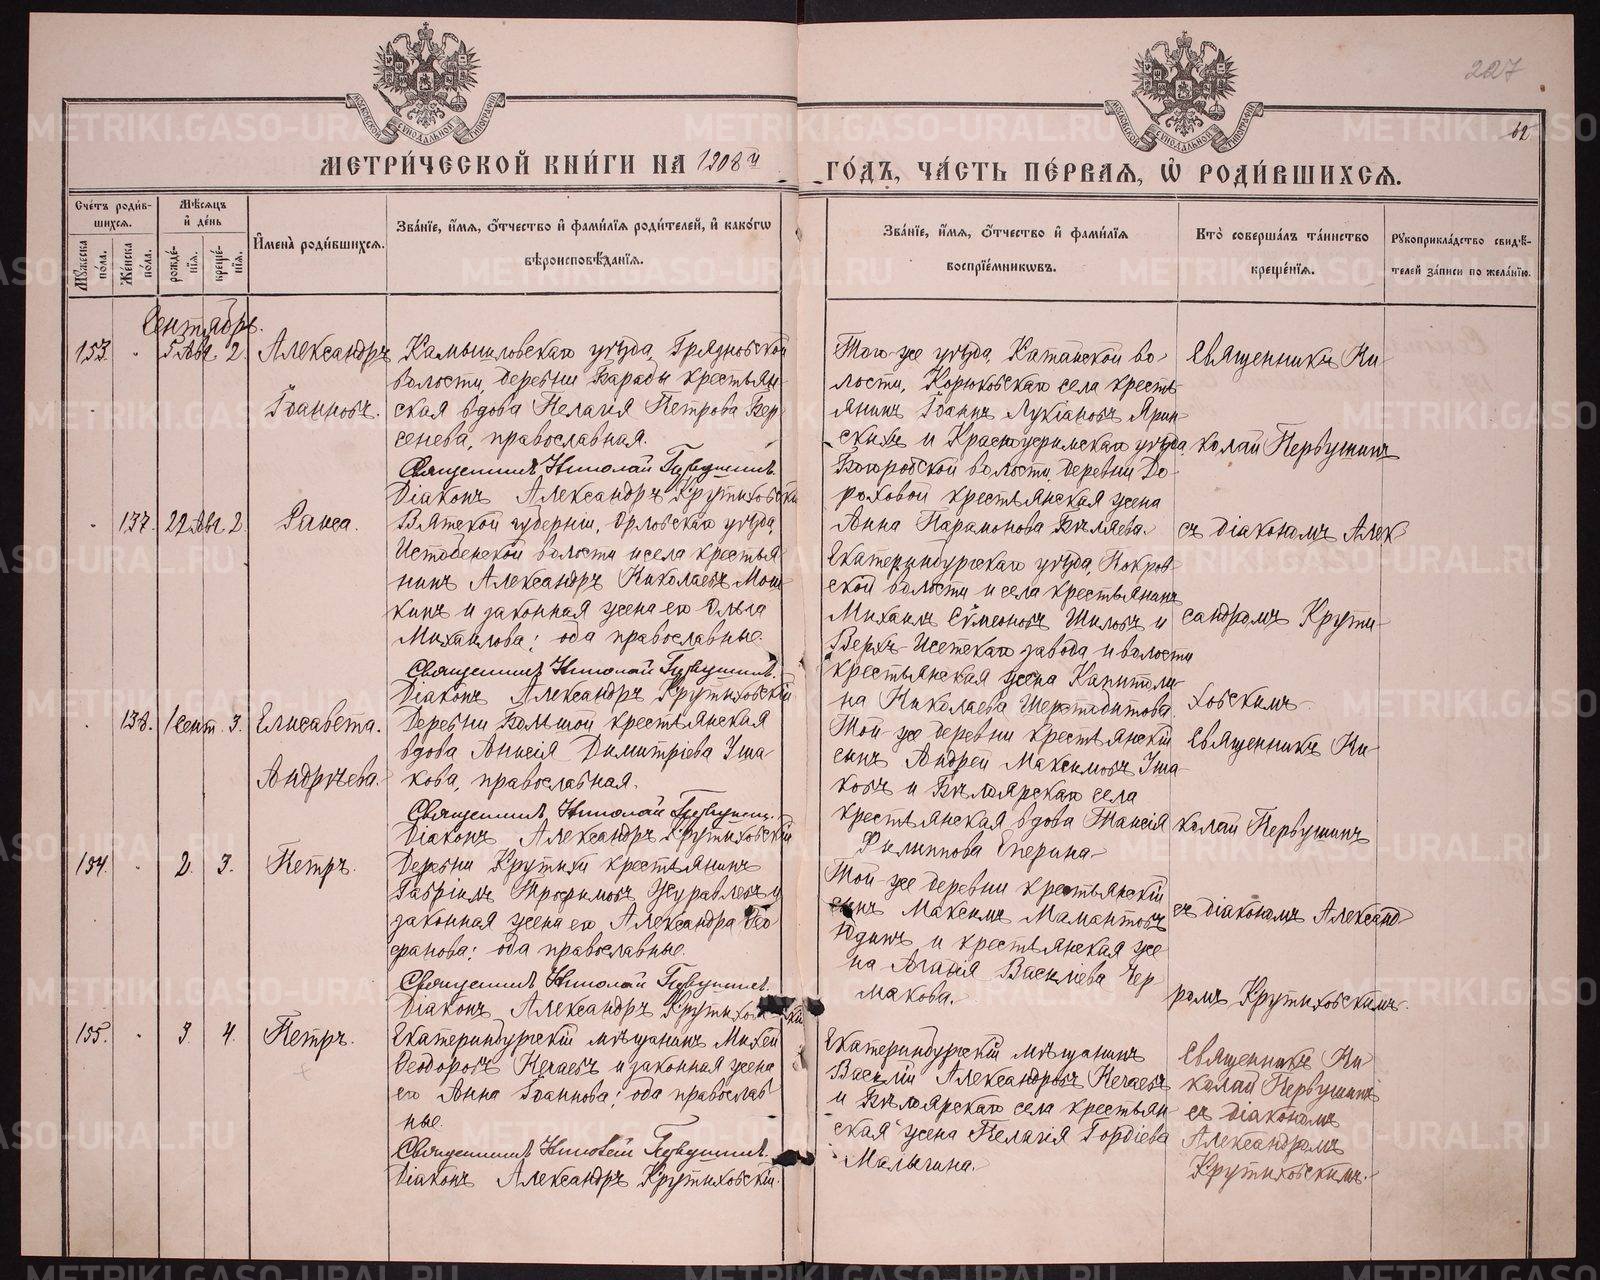 207
62
МОСКОВСКОЙ СѴНОДАЛЬНОЙ ТИПОГРАФІИ
МОСКОВСКОЙ СѴНОДАЛЬНОЙ ТИПОГРАФІИ
МЕТРИ́ЧЕСКОЙ КНИ́ГИ НА 1908й ГО́ДЪ, ЧА́СТЬ ПЕ́РВАЯ, Ѡ҆ РОДИ́ВШИХСЯ.
Сче́тъ роди́в-
шихся.
Мꙋ́жеска по́ла.
Же́нска по́ла.
Мѣ́сяцъ
и҆ де́нь
рожде́-
нїя.
креще́-
нїя.
И҆мена̀ роди́вшихся.
Зва́нїе, и҆́мя, ѻ҆́тчество и҆ фами́лїя роди́телей, и҆ како́гѡ
вѣроисповѣ́данїя.
Зва́нїе, и҆́мя, ѻ҆́тчество и҆ фами́лїя
воспрїе́мникѡвъ.
Кто̀ соверша́лъ та́инство
креще́нїя.
Рꙋкоприкла́дство свидѣ́-
телей за́писи по жела́нїю.
Сентябрь.
153.
5 Авг. 2.
Александръ
Іоанновъ.
Камышловскаго уѣзда, Грязновской
волости, деревни Барабы крестьян-
ская вдова Пелагія Петрова Бер-
сенева, православная.
Священникъ Николай Первушинъ
Діаконъ Александръ Крутиховскій
Того-же уѣзда, Катайской во-
лости, Корюковскаго села кресть-
янинъ Іоаннъ Лукіановъ Ярин-
скихъ и Красноуфимскаго уѣзда
Богородской волости, деревни До-
роховой крестьянская жена
Анна Парамонова Бѣляева.
137. 22 Авг. 2.
Раиса.
Вятской губерніи, Орловскаго уѣзда,
Истобенской волости и села крестья-
нинъ Александръ Николаевъ Мош-
кинъ и законная жена его Ольга
Михаилова; оба православные.
Священникъ Николай Первушинъ.
Діаконъ Александръ Крутиховскій
Екатеринбургскаго уѣзда, Покров-
ской волости и села крестьянинъ
Михаилъ Сѵмеоновъ Шиловъ и
Верхъ-Исетскаго завода и волости
крестьянская жена Капитоли-
на Николаева Шерстобитова.
Священникъ Ни-
колай Первушинъ
съ діакономъ Алек-
сандромъ Крути-
ховскимъ.
138. 1 Сент. 3.
Елисавета.
Андреева.
Деревни Большой крестьянская
вдова Анисія Димитріева Уша-
кова, православная.
Священникъ Николай Первушин.
Діаконъ Александръ Крутиховскій
Той-же деревни крестьянскій
сынъ Андрей Максимовъ Уша-
ковъ и Бѣлоярскаго села
крестьянская вдова Таисія
Филиппова
154. 2. 3.
Петръ.
Деревни Крутихи крестьянинъ
Гавріилъ Трофимовъ Журавлевъ и
законная жена его Александра Ѳео-
фанова; оба православные.
Священникъ Николай Первушинъ.
Діаконъ Александръ Крутиховскій
Той-же деревни крестьянскій
сынъ Максимъ Мамантовъ
Юдинъ и крестьянская же-
на Агапія Василіева Чер-
макова.
Священникъ Ни-
колай Первушинъ
съ діакономъ Александ-
ромъ Крутиховскимъ.
155. 3. 4.
Петръ.
Екатеринбургскій мѣщанинъ Михей
Ѳеодоровъ Нечаевъ и законная жена
его Анна Іоаннова; оба православ-
ные.
Священникъ Николай Первушинъ.
Діаконъ Александръ Крутиховскій.
Екатеринбургскій мѣщанинъ
Василій Александровъ Нечаевъ
и Бѣлоярскаго села крестьян-
ская жена Пелагія Гордіева
Малыгина.
Священникъ Ни-
колай Первушинъ
съ діакономъ
Александромъ
Крутиховскимъ.
METRIKI.GASO-URAL.RU